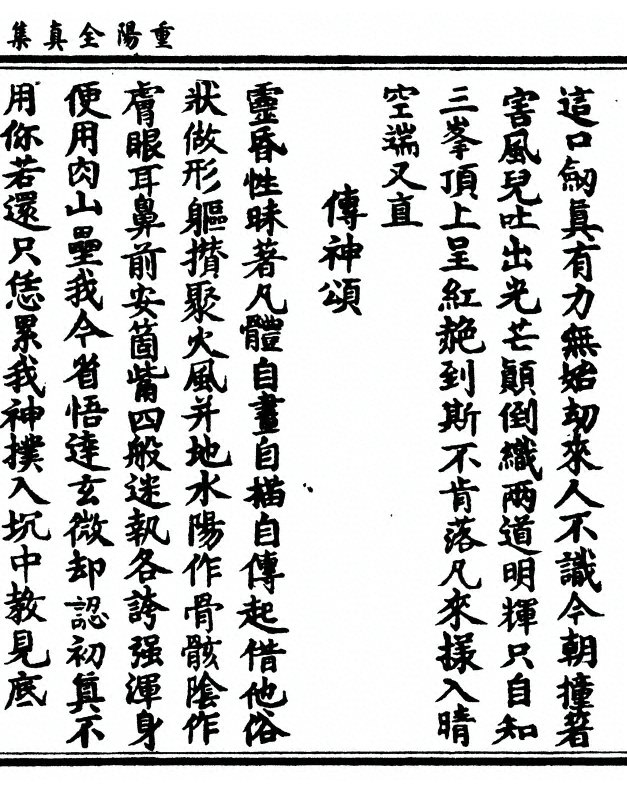 重陽全真集
這口劒真有力無始劫來人不識今朝撞著
害風兒吐出光芒顛倒織兩道明輝只自知
三峯頂上呈紅赩到斯不肯落凡來擡入晴
空端又直
傳神頌
靈昏性昧著凡體自畫自描自傳起借他俗
狀做形軀攢聚火風并地水陽作骨骸陰作
膚眼耳鼻前安箇觜四般迷執各誇强渾身
便用肉山壘我今省悟達玄微却認初真不
用你若還只恁累我神撲入坑中教見底